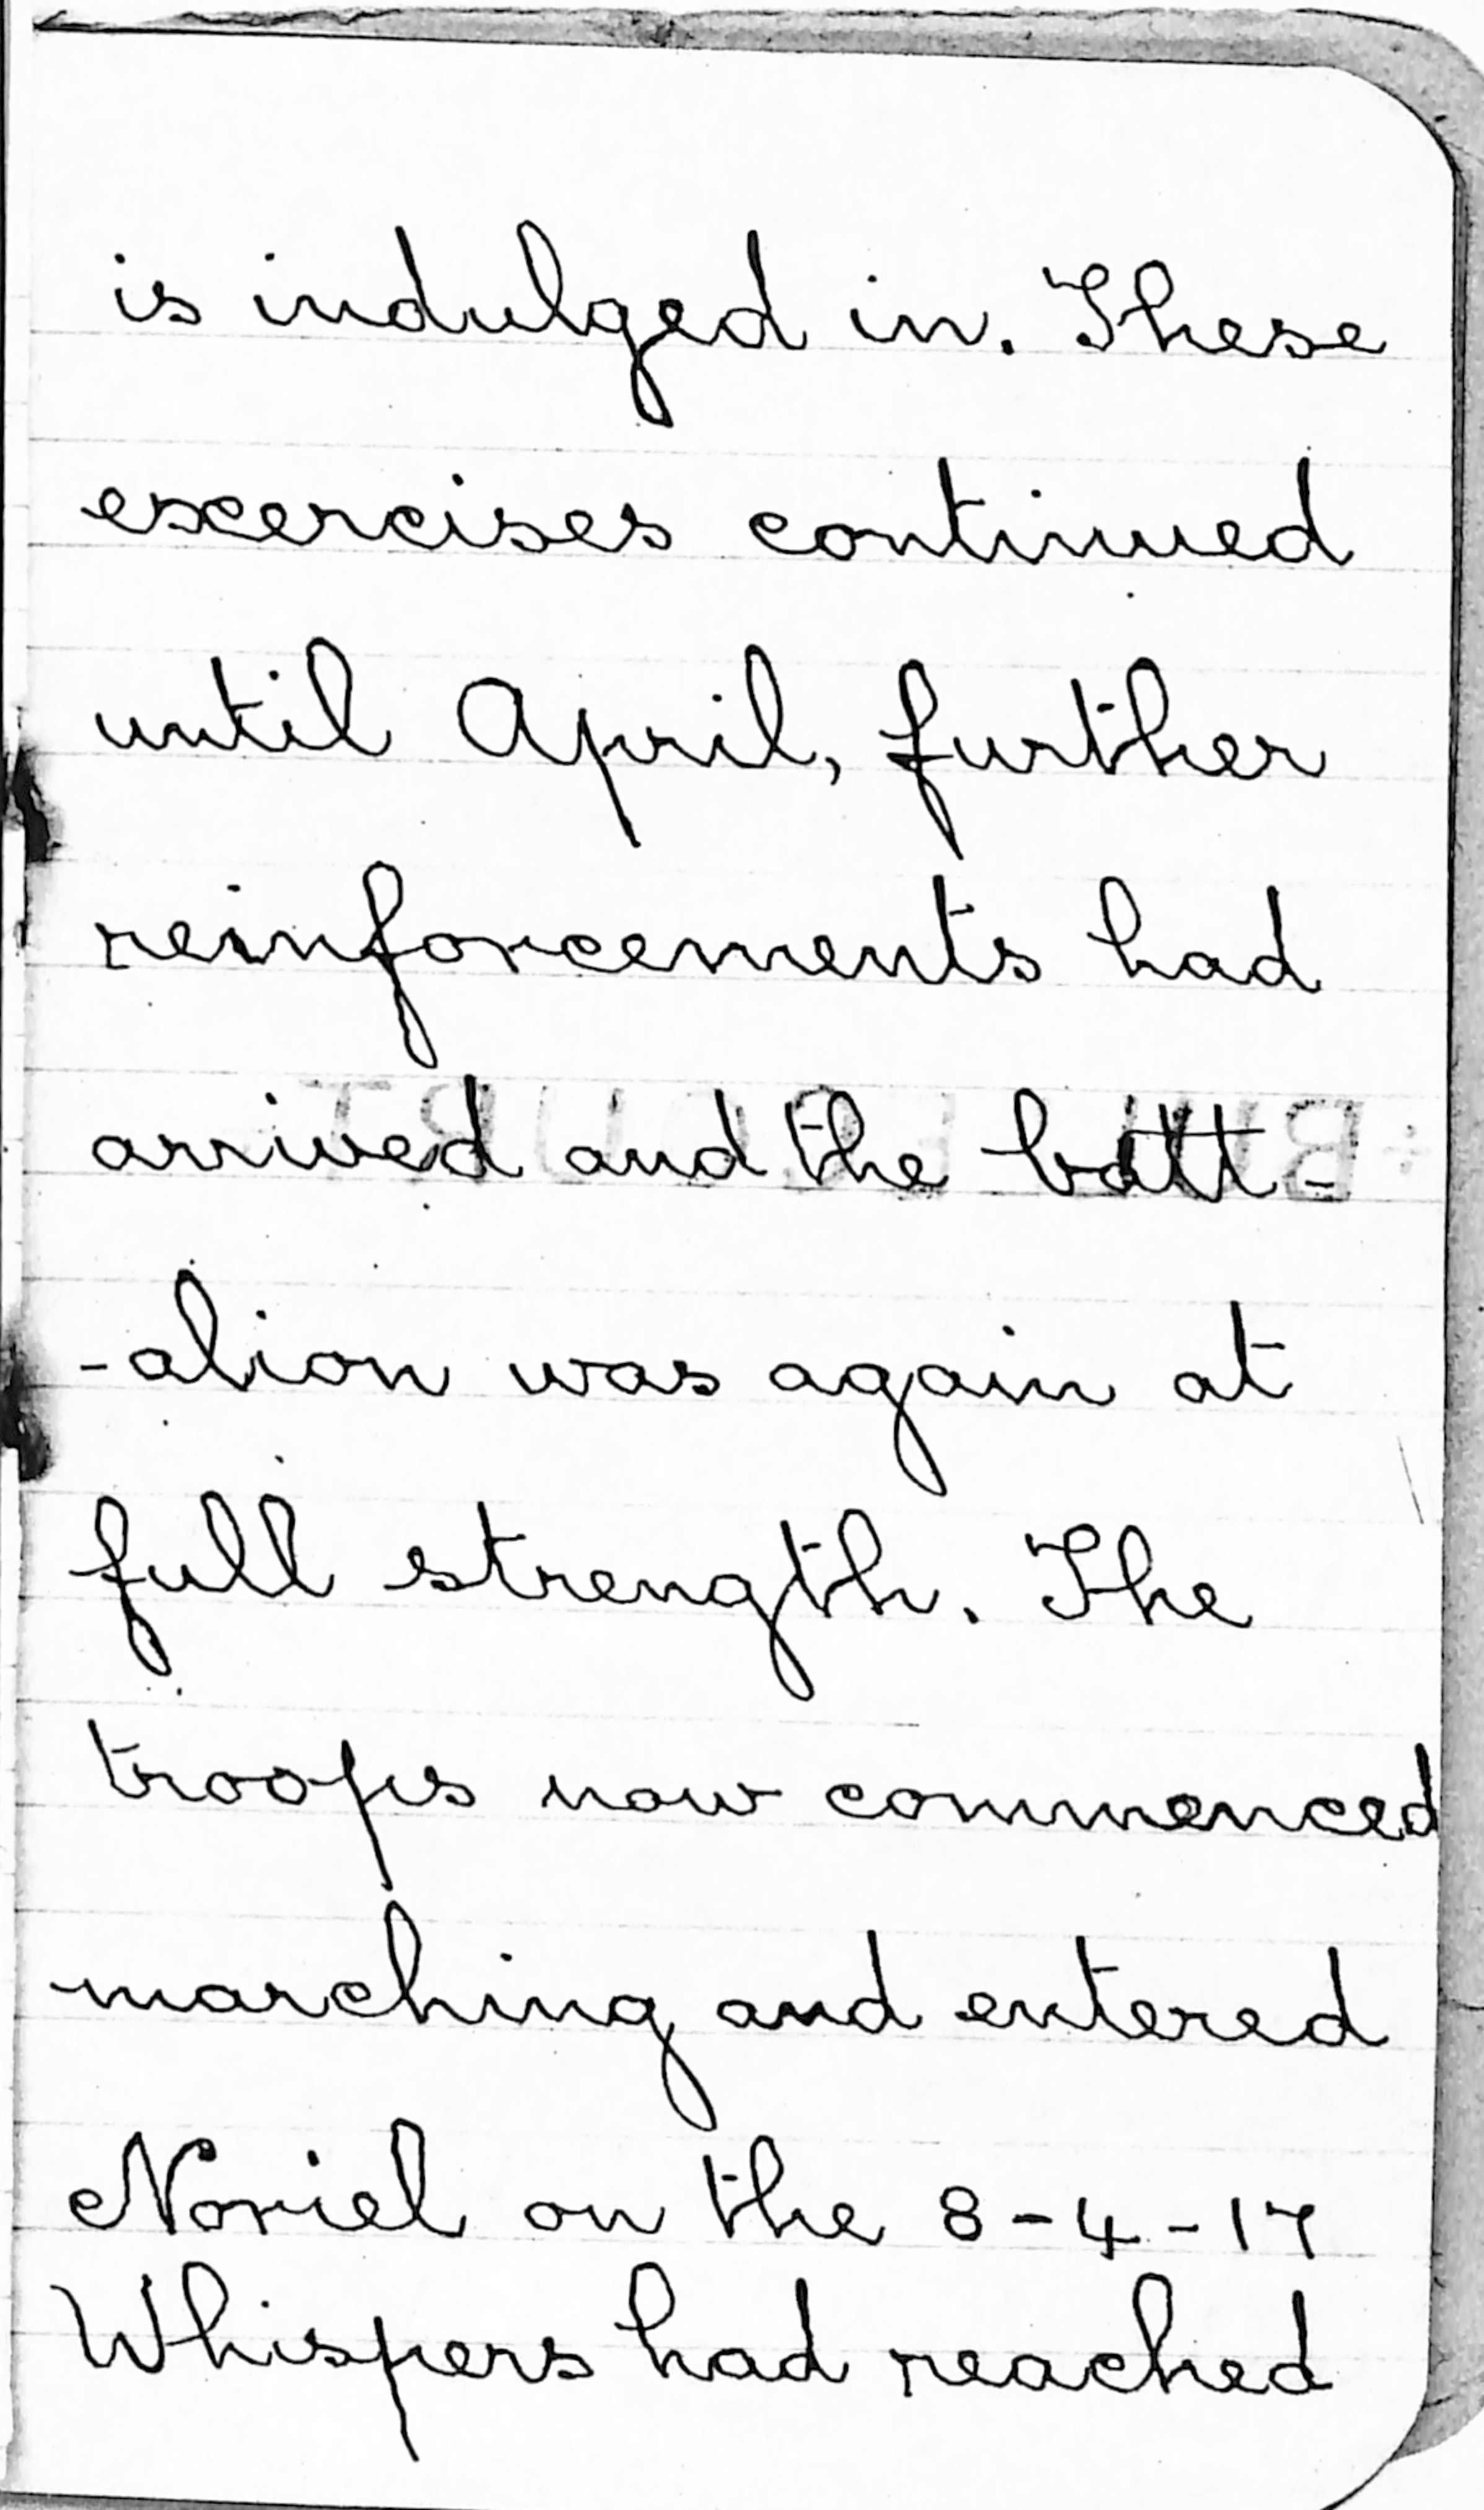 is indulged in. These
excercises continued
until April, further
reinforcements had
arrived and the batt-
-alion was again at
full strength. The
troops now commenced
marching and entered
Noriel on the 8-4-17
Whispers had reached